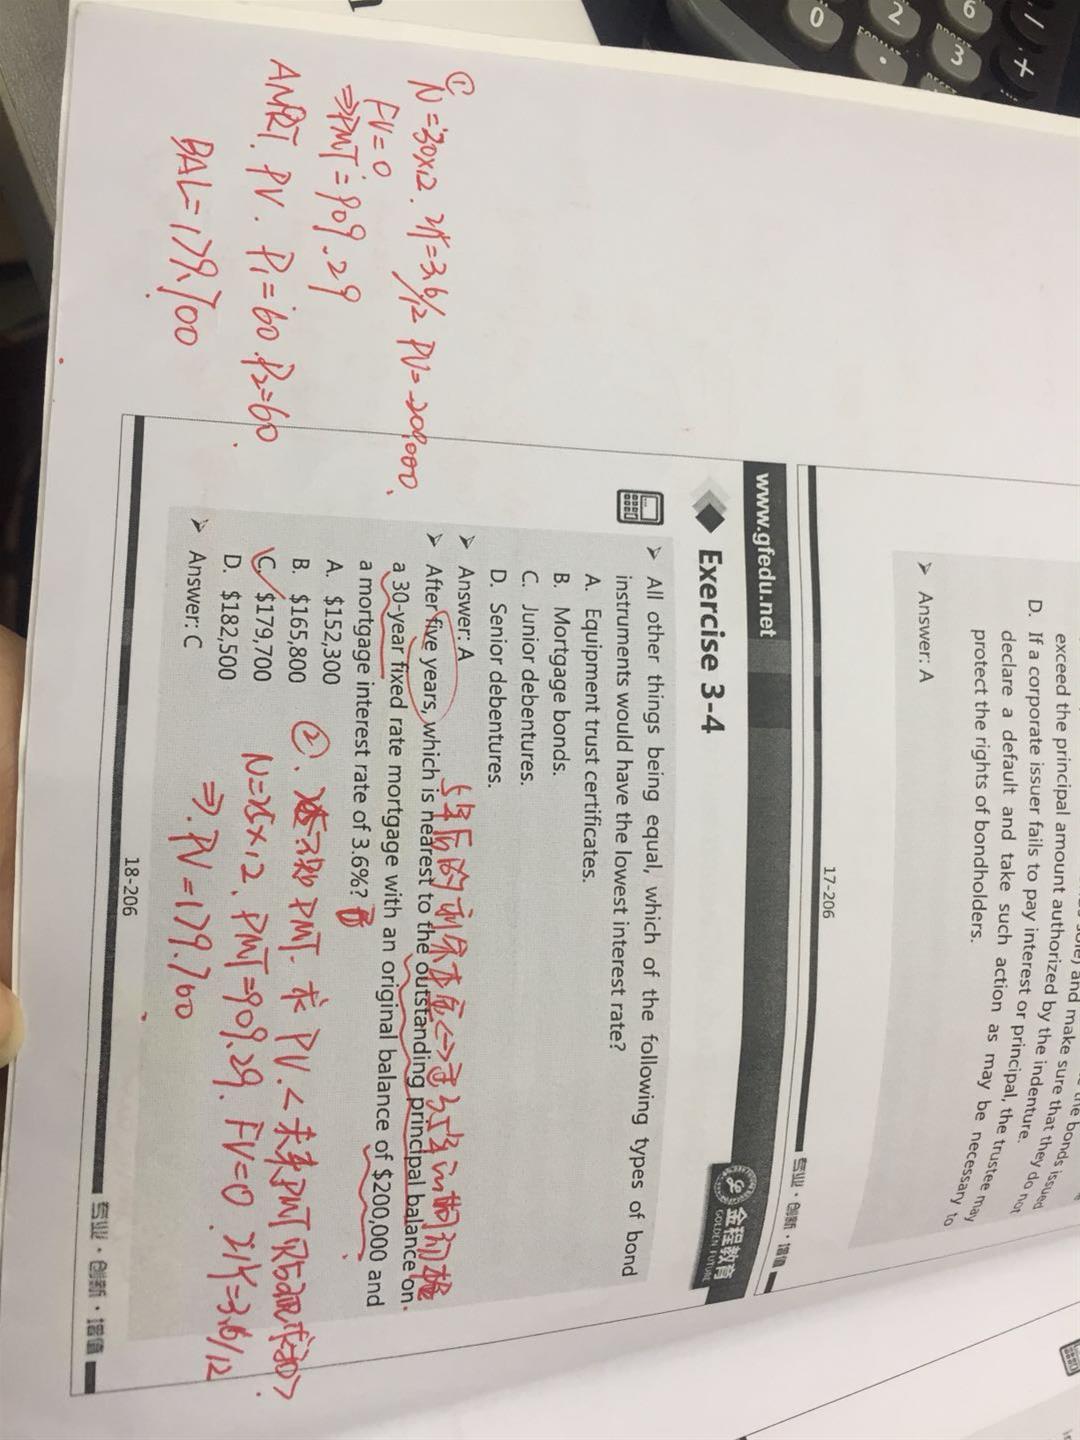 exceed the principal amount authorized by the indenture.
D. If a corporate issuer fails to pay interest or principal, the trustee may
declare a default and take such action as may be necessary to
protect the rights of bondholders.
➤ Answer: A
17-206
专业·创新·增值
www.gfedu.net
金程教育
GOLDEN FUTURE
Exercise 3-4
➤ All other things being equal, which of the following types of bond
instruments would have the lowest interest rate?
A. Equipment trust certificates.
B. Mortgage bonds.
C. Junior debentures.
D. Senior debentures.
➤ Answer: A
➤ After five years, which is nearest to the outstanding principal balance on
a 30-year fixed rate mortgage with an original balance of $200,000 and
a mortgage interest rate of 3.6%?
A. $152,300
B. $165,800
C. $179,700
D. $182,500
➤ Answer: C
18-206
专业·创新·增值
①
N=30×12. I/Y=3.6/12 PV=-200000.
FV=0
⇒PMT=909.29
AMRT. PV. P1=60. P2=60.
BAL=179,700
5年后的剩余本金
②.
PMT. 求PV.<未来PMT
N=25×12. PMT=909.29. FV=0. I/Y=3.6/12
⇒. PV=179.700
0
2
.
6
3
+